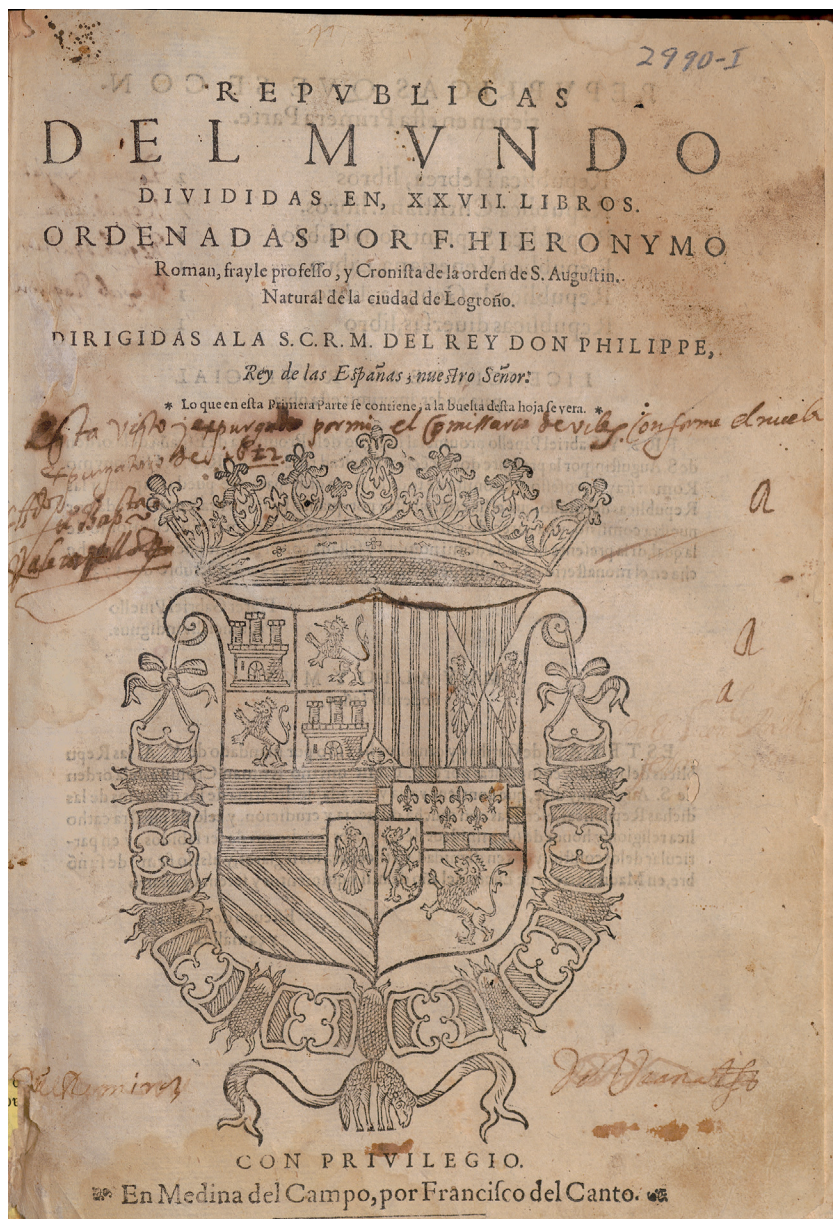 2990-I
REPVBLICAS
DEL MVNDO
DIVIDIDAS EN, XXVII. LIBROS.
ORDENADAS POR F. HIERONYMO
Roman, frayle profeſſo, y Croniſta de la orden de S. Auguſtin.
Natural de la ciudad de Logroño.
DIRIGIDAS ALA S.C.R.M. DEL REY DON PHILIPPE,
Rey de las Eſpañas, nueſtro Señor:
* Lo que en eſta Primera Parte ſe contiene, a la buelta deſta hoja ſe vera. *
Esta visto y espurgado por mi el Comissario de conforme el
espurgatorio de
a
a
a
Ramirez
CON PRIVILEGIO.
En Medina del Campo, por Franciſco del Canto.